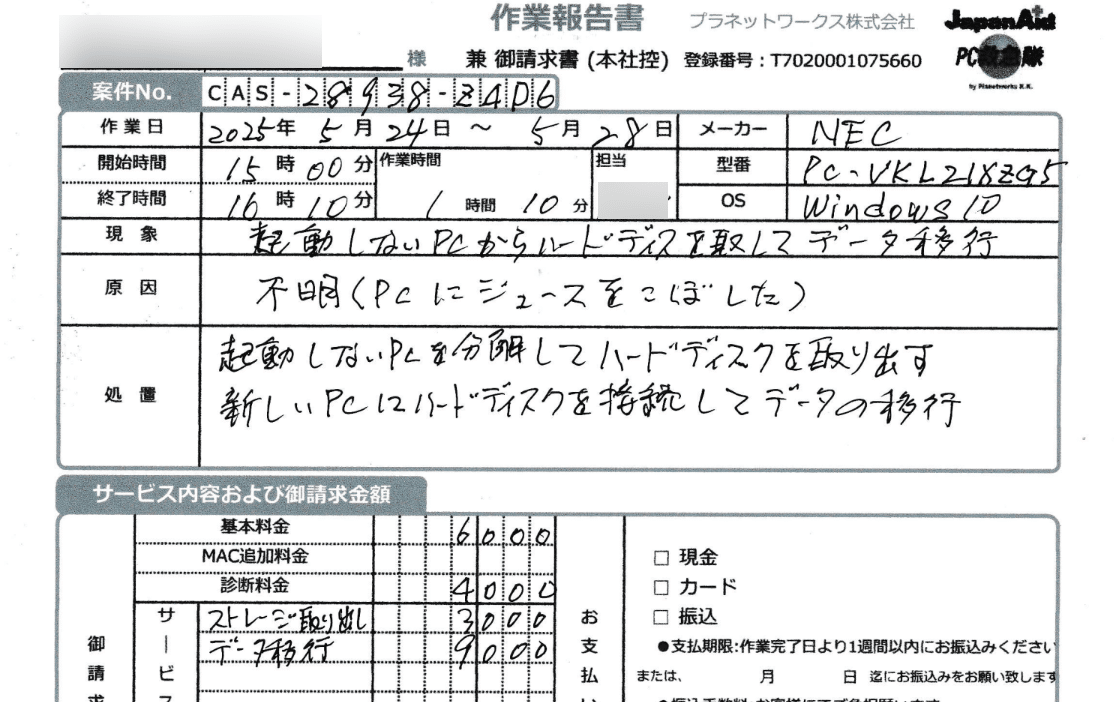 作業報告書
プラネットワークス株式会社
JapanAid
様
兼 御請求書 (本社控)
登録番号：T7020001075660
PC救急隊
by Planetworks K.K.
案件No. CAS-28938-Z4D6
作業日 2025年 5月 24日 ～ 5月 28日 メーカー NEC
開始時間 15時 00分 作業時間 担当 型番 PC-VKL21XZG5
終了時間 16時 10分 1時間 10分 OS Windows 10
現象 起動しないPCからハードディスを取してデータ移行
原因 不明(PCにジュースをこぼした)
処置 起動しないPCを分解してハードディスクを取り出す
新しいPCにハードディスクを接続してデータの移行
サービス内容および御請求金額
基本料金 6000
MAC追加料金
診断料金 4000
ストレージ取り出し 3000
データ移行 9000
御請求
サービス
お支払い
□ 現金
□ カード
□ 振込
●支払期限:作業完了日より1週間以内にお振込みください
または、 月 日 迄にお振込みをお願い致します